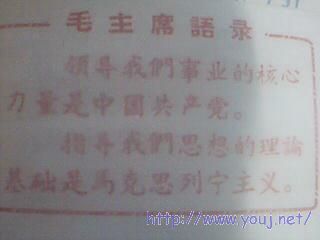 毛主席語录
領导我們事业的核心
力量是中国共产党。
指导我們思想的理論
基础是馬克思列宁主义。
http://www.youj.net/